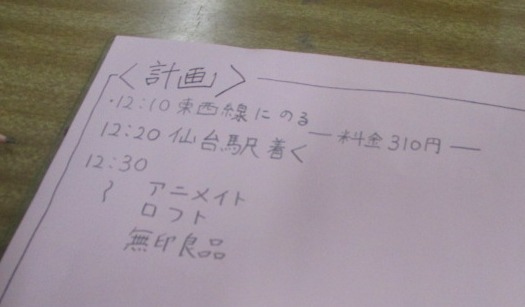 〈計画〉
・12:10 東西線にのる
― 料金310円 ―
12:20 仙台駅着く
12:30
～ アニメイト
ロフト
無印良品